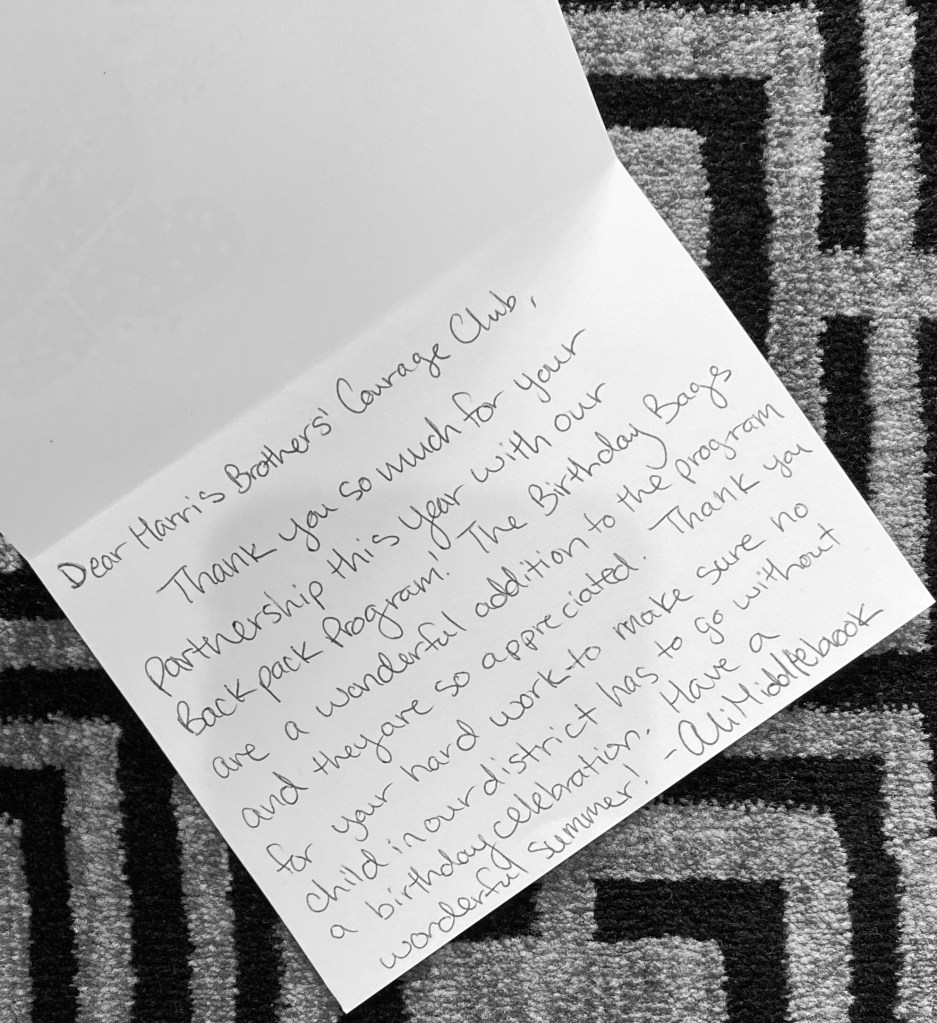 Dear Harris Brothers' Courage Club,
Thank you so much for your
partnership this year with our
Backpack Program! The Birthday Bags
are a wonderful addition to the program
and they are so appreciated. Thank you
for your hard work to make sure no
child in our district has to go without
a birthday celebration. Have a
wonderful summer! - Ali Middlebrook